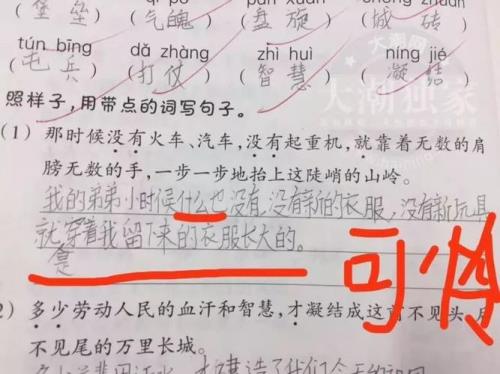 (堡垒) (气魄) (盘旋) (城砖)
tún bīng dǎ zhàng zhì huì níng jié
(屯兵) (打仗) (智慧) (凝结)
照样子,用带点的词写句子。
(1) 那时候没有火车、汽车,没有起重机,就靠着无数的肩
膀无数的手,一步一步地抬上这陡峭的山岭。
我的弟弟小时候什么也没有,没有新的衣服,没有新玩具
就是穿着我留下来的衣服长大的。
可怜
2) 多少劳动人民的血汗和智慧,才凝结成这前不见头,后
不见尾的万里长城。
大潮网
大潮独家